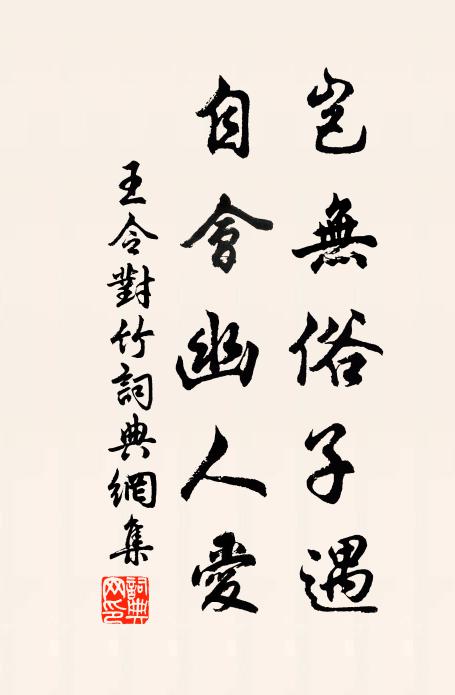 豈無俗子遇
自會幽人愛
王令對竹詞典網集
詞典网印